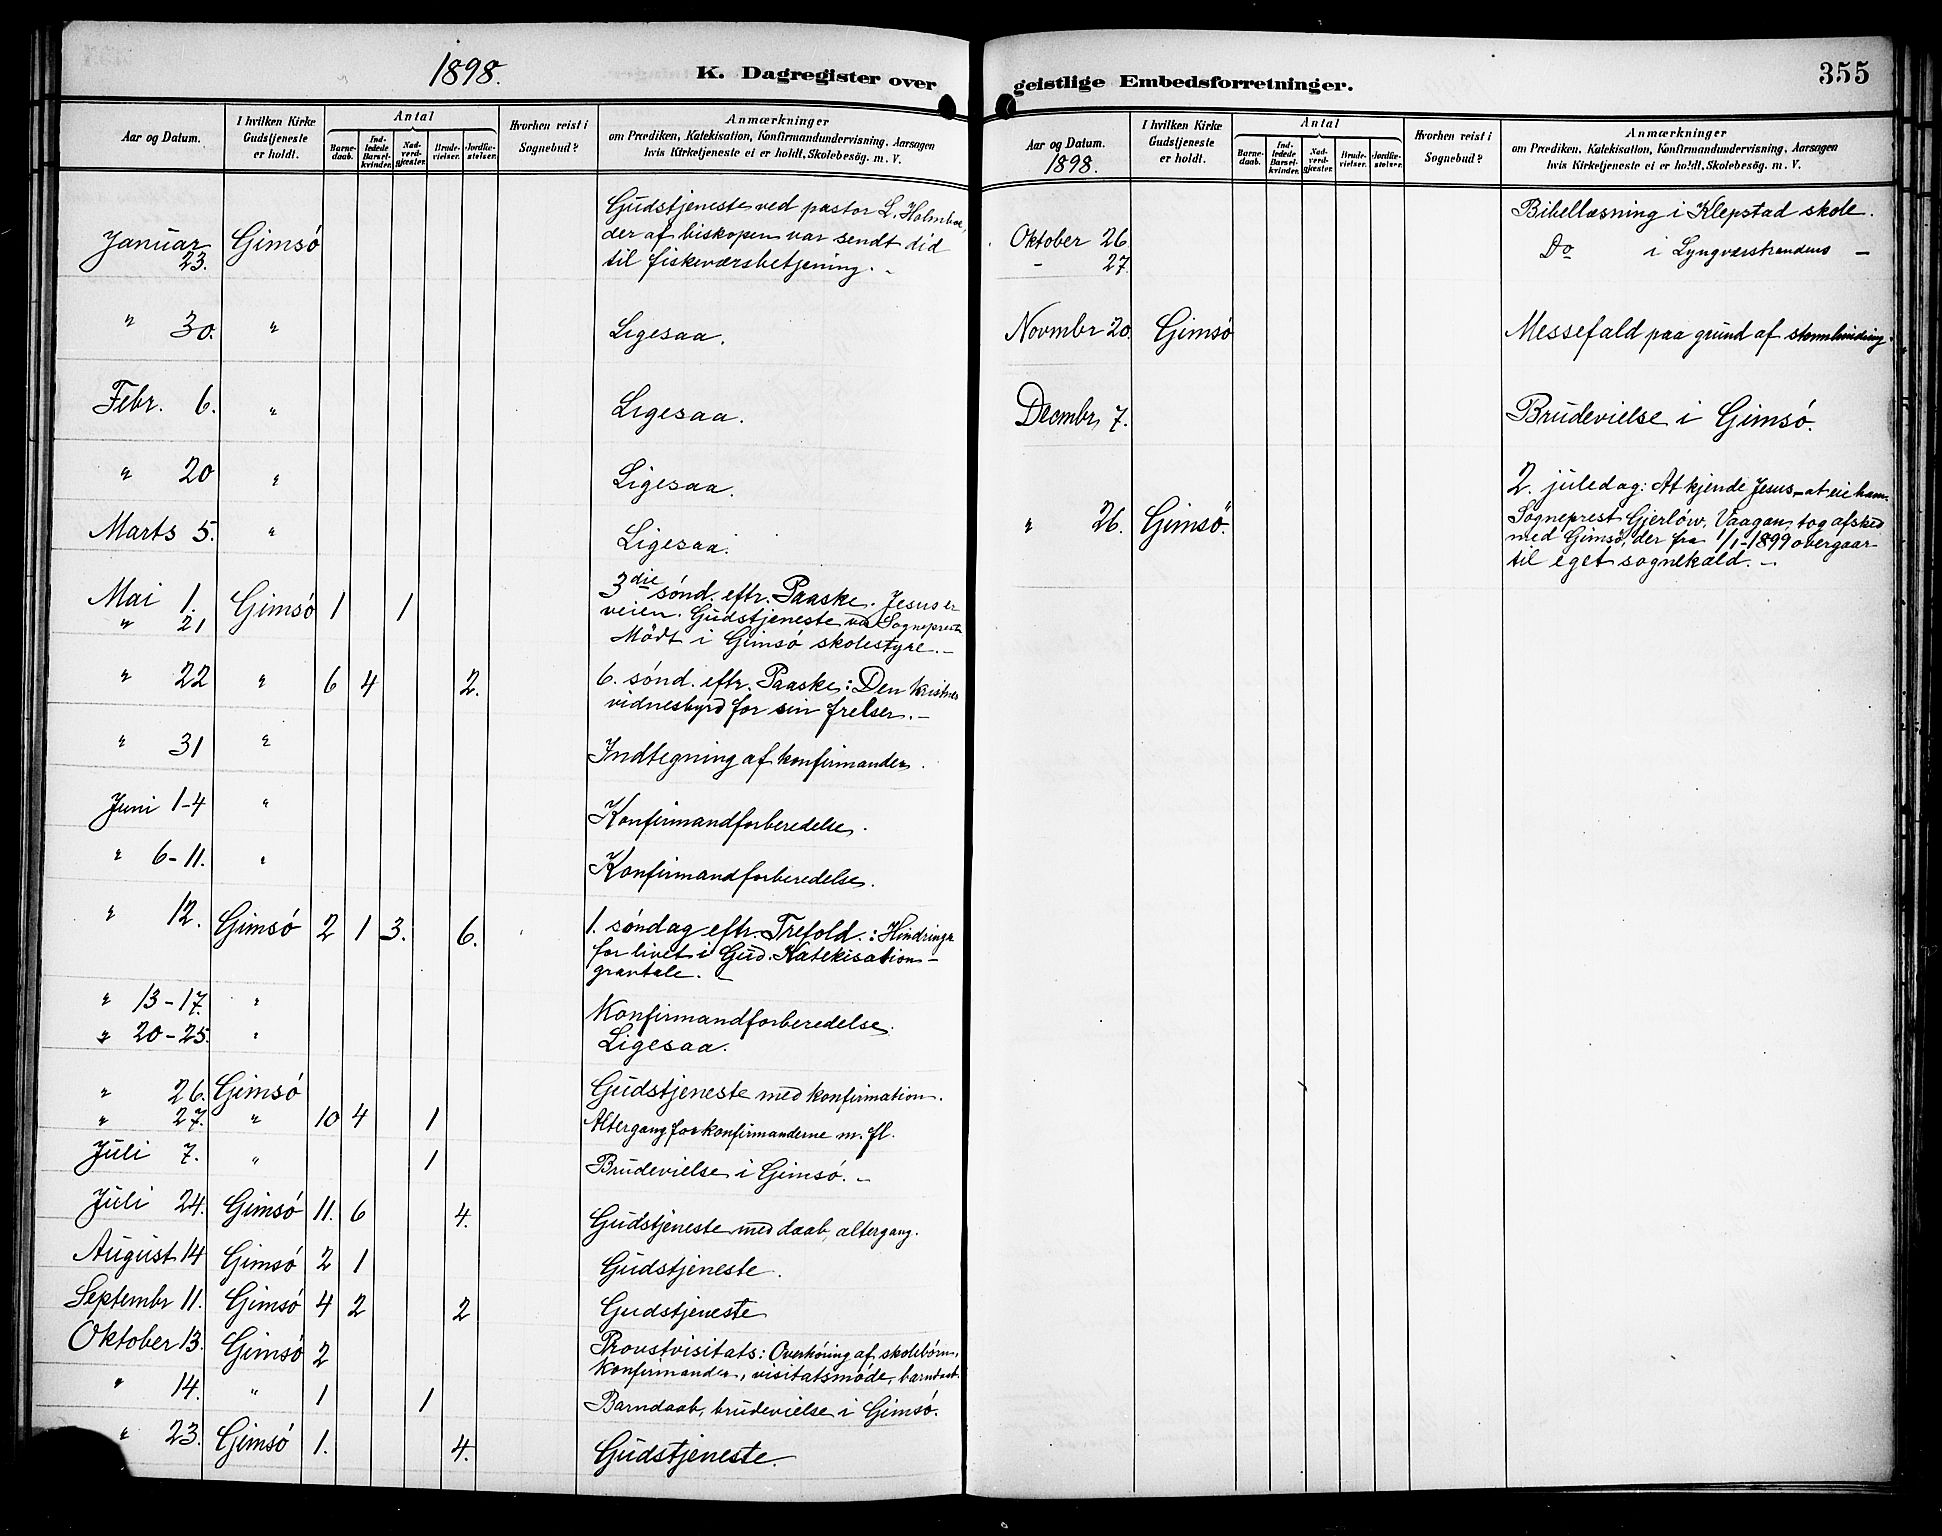 1898.
K. Dagregister over
Aar og Datum.
I hvilken Kirke Gudstjeneste er holdt.
Antal
Barnedaab.
Indledede Barselkvinder.
Nadverdgjæster.
Brudevielser.
Jordfæstelser.
Hvorhen reist i Sognebud?
Anmærkninger
om Prædiken, Katekisation, Konfirmandundervisning, Aarsagen
hvis Kirketjeneste ei er holdt, Skolebesøg. m. V.
Gudstjeneste ved pastor L. Holmboe,
Januar 23. Gimsö der af biskopen var sendt did
til fiskeværsbetjening. -
" 30. " Ligesaa.
Febr. 6. " Ligesaa.
" 20 " Ligesaa.
Marts 5. " Ligesaa.
Mai 1. Gimsö 1 1 3die sönd. eftr. Paaske. Jesus er
veien. Gudstjeneste ved Sogneprest
" 21 Mödt i Gimsö skolestyre. -
" 22 " 6 4 2. 6. sönd. eftr. Paaske: Den kristnes
vidnesbyrd for sin frelser. -
" 31 " Indtegning af konfirmander.
Juni 1-4 " Konfirmandforberedelse.
" 6-11. " Konfirmandforberedelse.
" 12. Gimsö 2 1 3. 6. 1. söndag eftr. Trefold.: Hindringer
for livet i Gud. Katekisation -
gravtale. -
" 13-17. " Konfirmandforberedelse.
" 20-25. " Ligesaa.
" 26. Gimsö Gudstjeneste med konfirmation.
" 27. " 10 4 1 Altergang for konfirmanderne m. fl.
Juli 7. " 1 Brudevielse i Gimsö. -
Juli 24. Gimsö 11. 6 4. Gudstjeneste med daab, altergang.
August 14 Gimsö 2 1 Gudstjeneste.
Septembr 11. Gimsö 4 2 2 Gudstjeneste
Oktober 13. Gimsö 2 Provstvisitats: Overhöring af skolebörn,
konfirmander, visitatsmöde, barndaab.
" 14. " 1 1 Barndaab, brudevielse i Gimsö.
" 23. Gimsö 1. 4. Gudstjeneste.
geistlige Embedsforretninger.
355
Aar og Datum.
1898.
I hvilken Kirke Gudstjeneste er holdt.
Antal
Barnedaab.
Indledede Barselkvinder.
Nadverdgjæster.
Brudevielser.
Jordfæstelser.
Hvorhen reist i Sognebud?
Anmærkninger
om Prædiken, Katekisation, Konfirmandundervisning, Aarsagen
hvis Kirketjeneste ei er holdt, Skolebesøg. m. V.
Oktober 26 Bibellæsning i Klepstad skole.
- 27. Do i Lyngværstrandens -
Novmbr 20. Gimsö Messefald paa grund af stormhindring.
Decmbr. 7. Brudevielse i Gimsö.
" 26. Gimsö. 2. juledag: At kjende Jesus - at eie ham.
Sogneprest Gjerlöw, Vaagan, tog afsked
med Gimsö, der fra 1/1-1899 overgaar
til eget sognekald. -